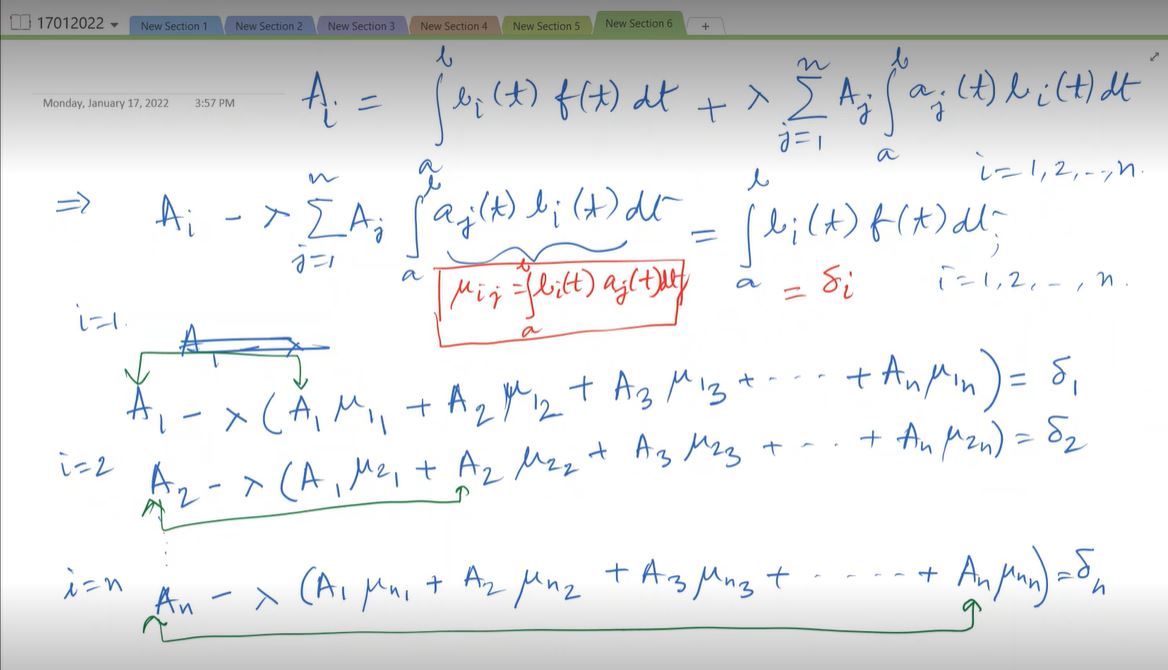 17012022 New Section 1 New Section 2 New Section 3 New Section 4 New Section 5 New Section 6 +
Monday, January 17, 2022 3:57 PM
A_i = ∫_a^b b_i(t) f(t) dt + λ ∑_{j=1}^n A_j ∫_a^b a_j(t) b_i(t) dt
i=1,2,..,n.
⇒ A_i - λ ∑_{j=1}^n A_j ∫_a^b a_j(t) b_i(t) dt = ∫_a^b b_i(t) f(t) dt;
μ_{ij} = ∫_a^b b_i(t) a_j(t) dt = δ_i i=1,2,..,n.
i=1.
A_1 - λ (A_1 μ_{11} + A_2 μ_{12} + A_3 μ_{13} + ---- + A_n μ_{1n}) = δ_1
i=2 A_2 - λ (A_1 μ_{21} + A_2 μ_{22} + A_3 μ_{23} + - .. + A_n μ_{2n}) = δ_2
i=n A_n - λ (A_1 μ_{n1} + A_2 μ_{n2} + A_3 μ_{n3} + ..... + A_n μ_{nn}) = δ_n